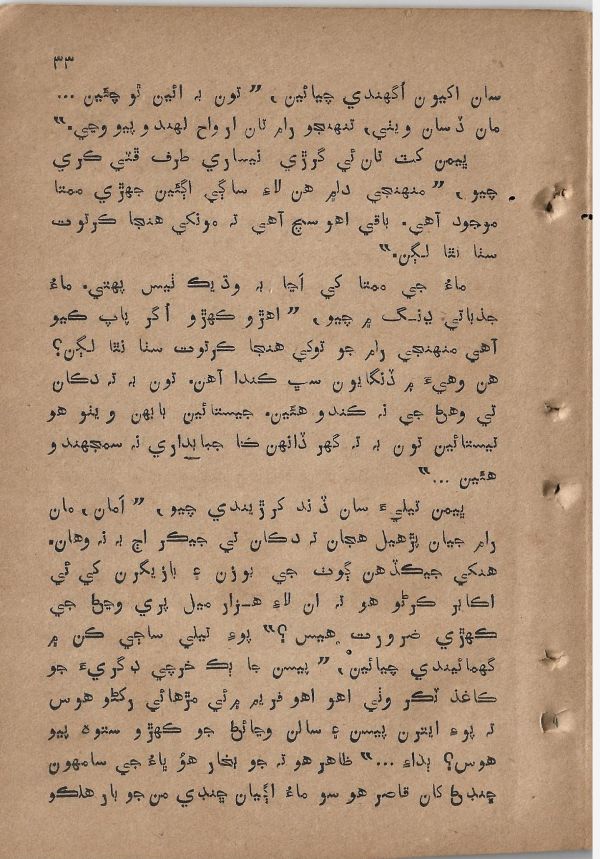 ٣٣
سان اکيون اُگهندي چيائين، ”تون بہ ائين ٿو چئين ...
مان ڏسان ويٺي، تنهنجو رام تان ارواح لهندو پيو وڃي.“
ڀيمن کٽ تان ئي گرڙي نيساري طرف ڦٽي ڪري
چيو، ”منهنجي دل ۾ هن لاءِ ساڳي اڳئين جهڙي ممتا
موجود آهي. باقي اهو سچ آهي تہ مونکي هنجا ڪرتوت
سٺا نٿا لڳن.“
ماءُ جي ممتا کي اڃا بہ وڌيڪ ٺيس پهتي. ماءُ
جذباتي ڍنگ ۾ چيو، ”اهڙو ڪهڙو اُگر پاپ ڪيو
آهي منهنجي رام جو توکي هنجا ڪرتوت سٺا نٿا لڳن؟
هن وهيءَ ۾ ڏنگايون سڀ ڪندا آهن. تون بہ تہ دڪان
تي وهڻ جي نہ ڪندو هئين. جيستائين بابهن ويٺو هو
تيستائين تون بہ تہ گهر ڏانهن ڪا جبابداري نہ سمجهندو
هئين ...“
ڀيمن تيليءَ سان ڏند کرڙيندي چيو، ”اَمان، مان
رام جيان پڙهيل هجان تہ دڪان تي جيڪر اڄ بہ نہ وهان.
هنکي جيڪڏهن ڳوٺ جي ٻوزن ۽ بازيگرن کي ئي
اڪابر ڪرڻو هو تہ ان لاءِ هزار ميل پري وڃڻ جي
ڪهڙي ضرورت هيس؟“ پوءِ تيلي ساڄي ڪن ۾
گهمائيندي چيائين، ”پيسن جا ٻڪ خرچي ڊگريءَ جو
ڪاغذ ٽڪر وٺي اهو اهو فريم ۾ ئي مڙهائي رکڻو هوس
تہ پوءِ ايترن پيسن ۽ سالن وڃائڻ جو ڪهڙو ستوہ پيو
هوس؟ ٻڌاءِ ...“ ظاهر هو تہ جو بخار هؤ ڀاءُ جي سامهون
ڇنڊڻ کان قاصر هو سو ماءُ اڳيان ڇنڊي من جو بار هلڪو